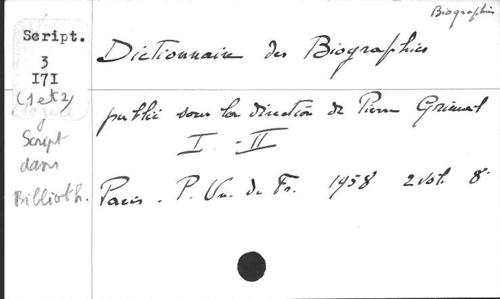 Biographies
Script.
3
171
(1 et 2)
Script
dans
Biblioth.
Dictionnaire des Biographies
publié sous la direction de Pierre Grimal
I - II
Paris. P. Un. de Fr. 1958 2 vol. 8°